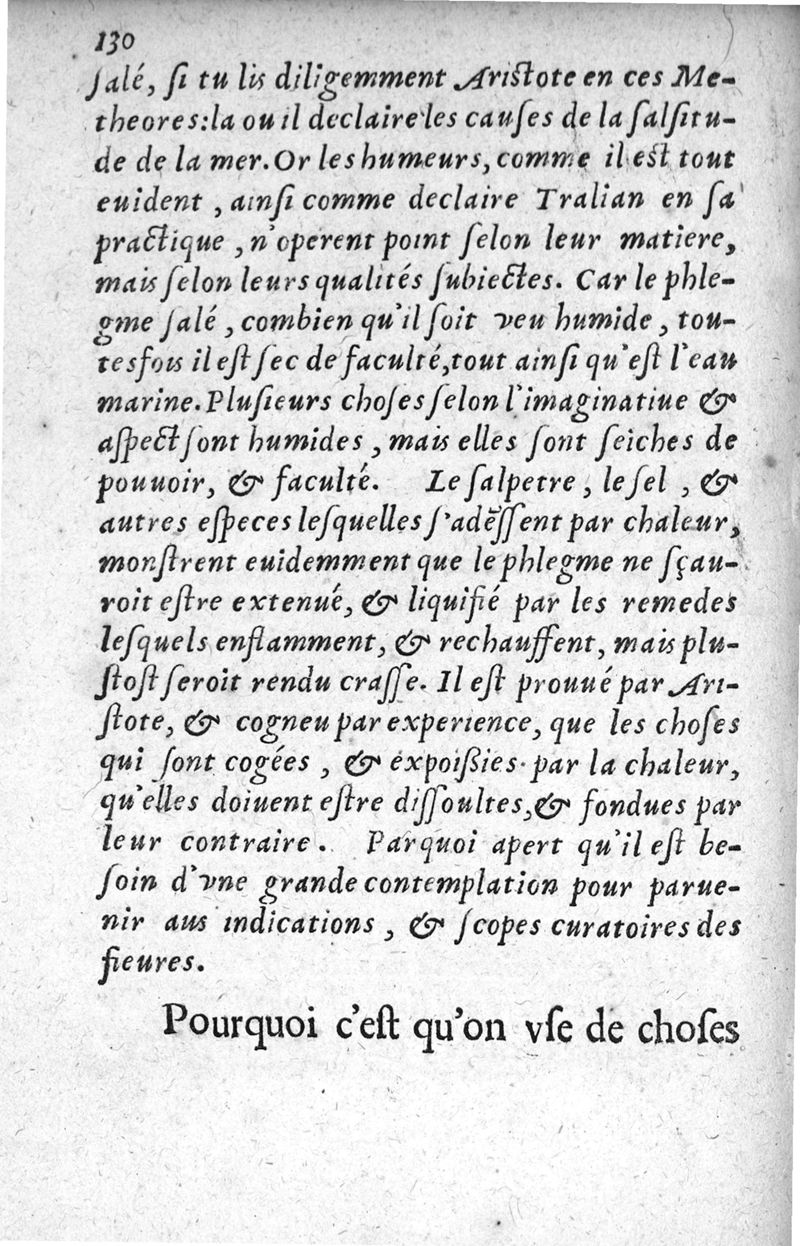 130
ſalé, ſi tu lis diligemment Ariſtote en ces Me-
theores:la ou il declaire les cauſes de la ſalſitu-
de de la mer. Or les humeurs, comme il eſt tout
euident, ainſi comme declaire Tralian en ſa
practique, n'operent point ſelon leur matiere,
mais ſelon leurs qualités ſubiectes. Car le phle-
gme ſalé, combien qu'il ſoit veu humide, tou-
tesfois il eſt ſec de faculté, tout ainſi qu'eſt l'eau
marine. Pluſieurs choſes ſelon l'imaginatiue &
aſpect ſont humides, mais elles ſont ſeiches de
pouuoir, & faculté. Le ſalpetre, le ſel, &
autres eſpeces leſquelles ſ'adēſſent par chaleur,
monſtrent euidemment que le phlegme ne ſçau-
roit eſtre extenué, & liquifié par les remedes
leſquels enflamment, & rechauffent, mais plu-
ſtoſt ſeroit rendu craſſe. Il eſt prouué par Ari-
ſtote, & cogneu par experience, que les choſes
qui ſont cogées, & expoiſsies par la chaleur,
qu'elles doiuent eſtre diſſoultes, & fondues par
leur contraire. Parquoi apert qu'il eſt be-
ſoin d'vne grande contemplation pour parue-
nir aus indications, & ſcopes curatoires des
fieures.
Pourquoi c'eſt qu'on vſe de choſes